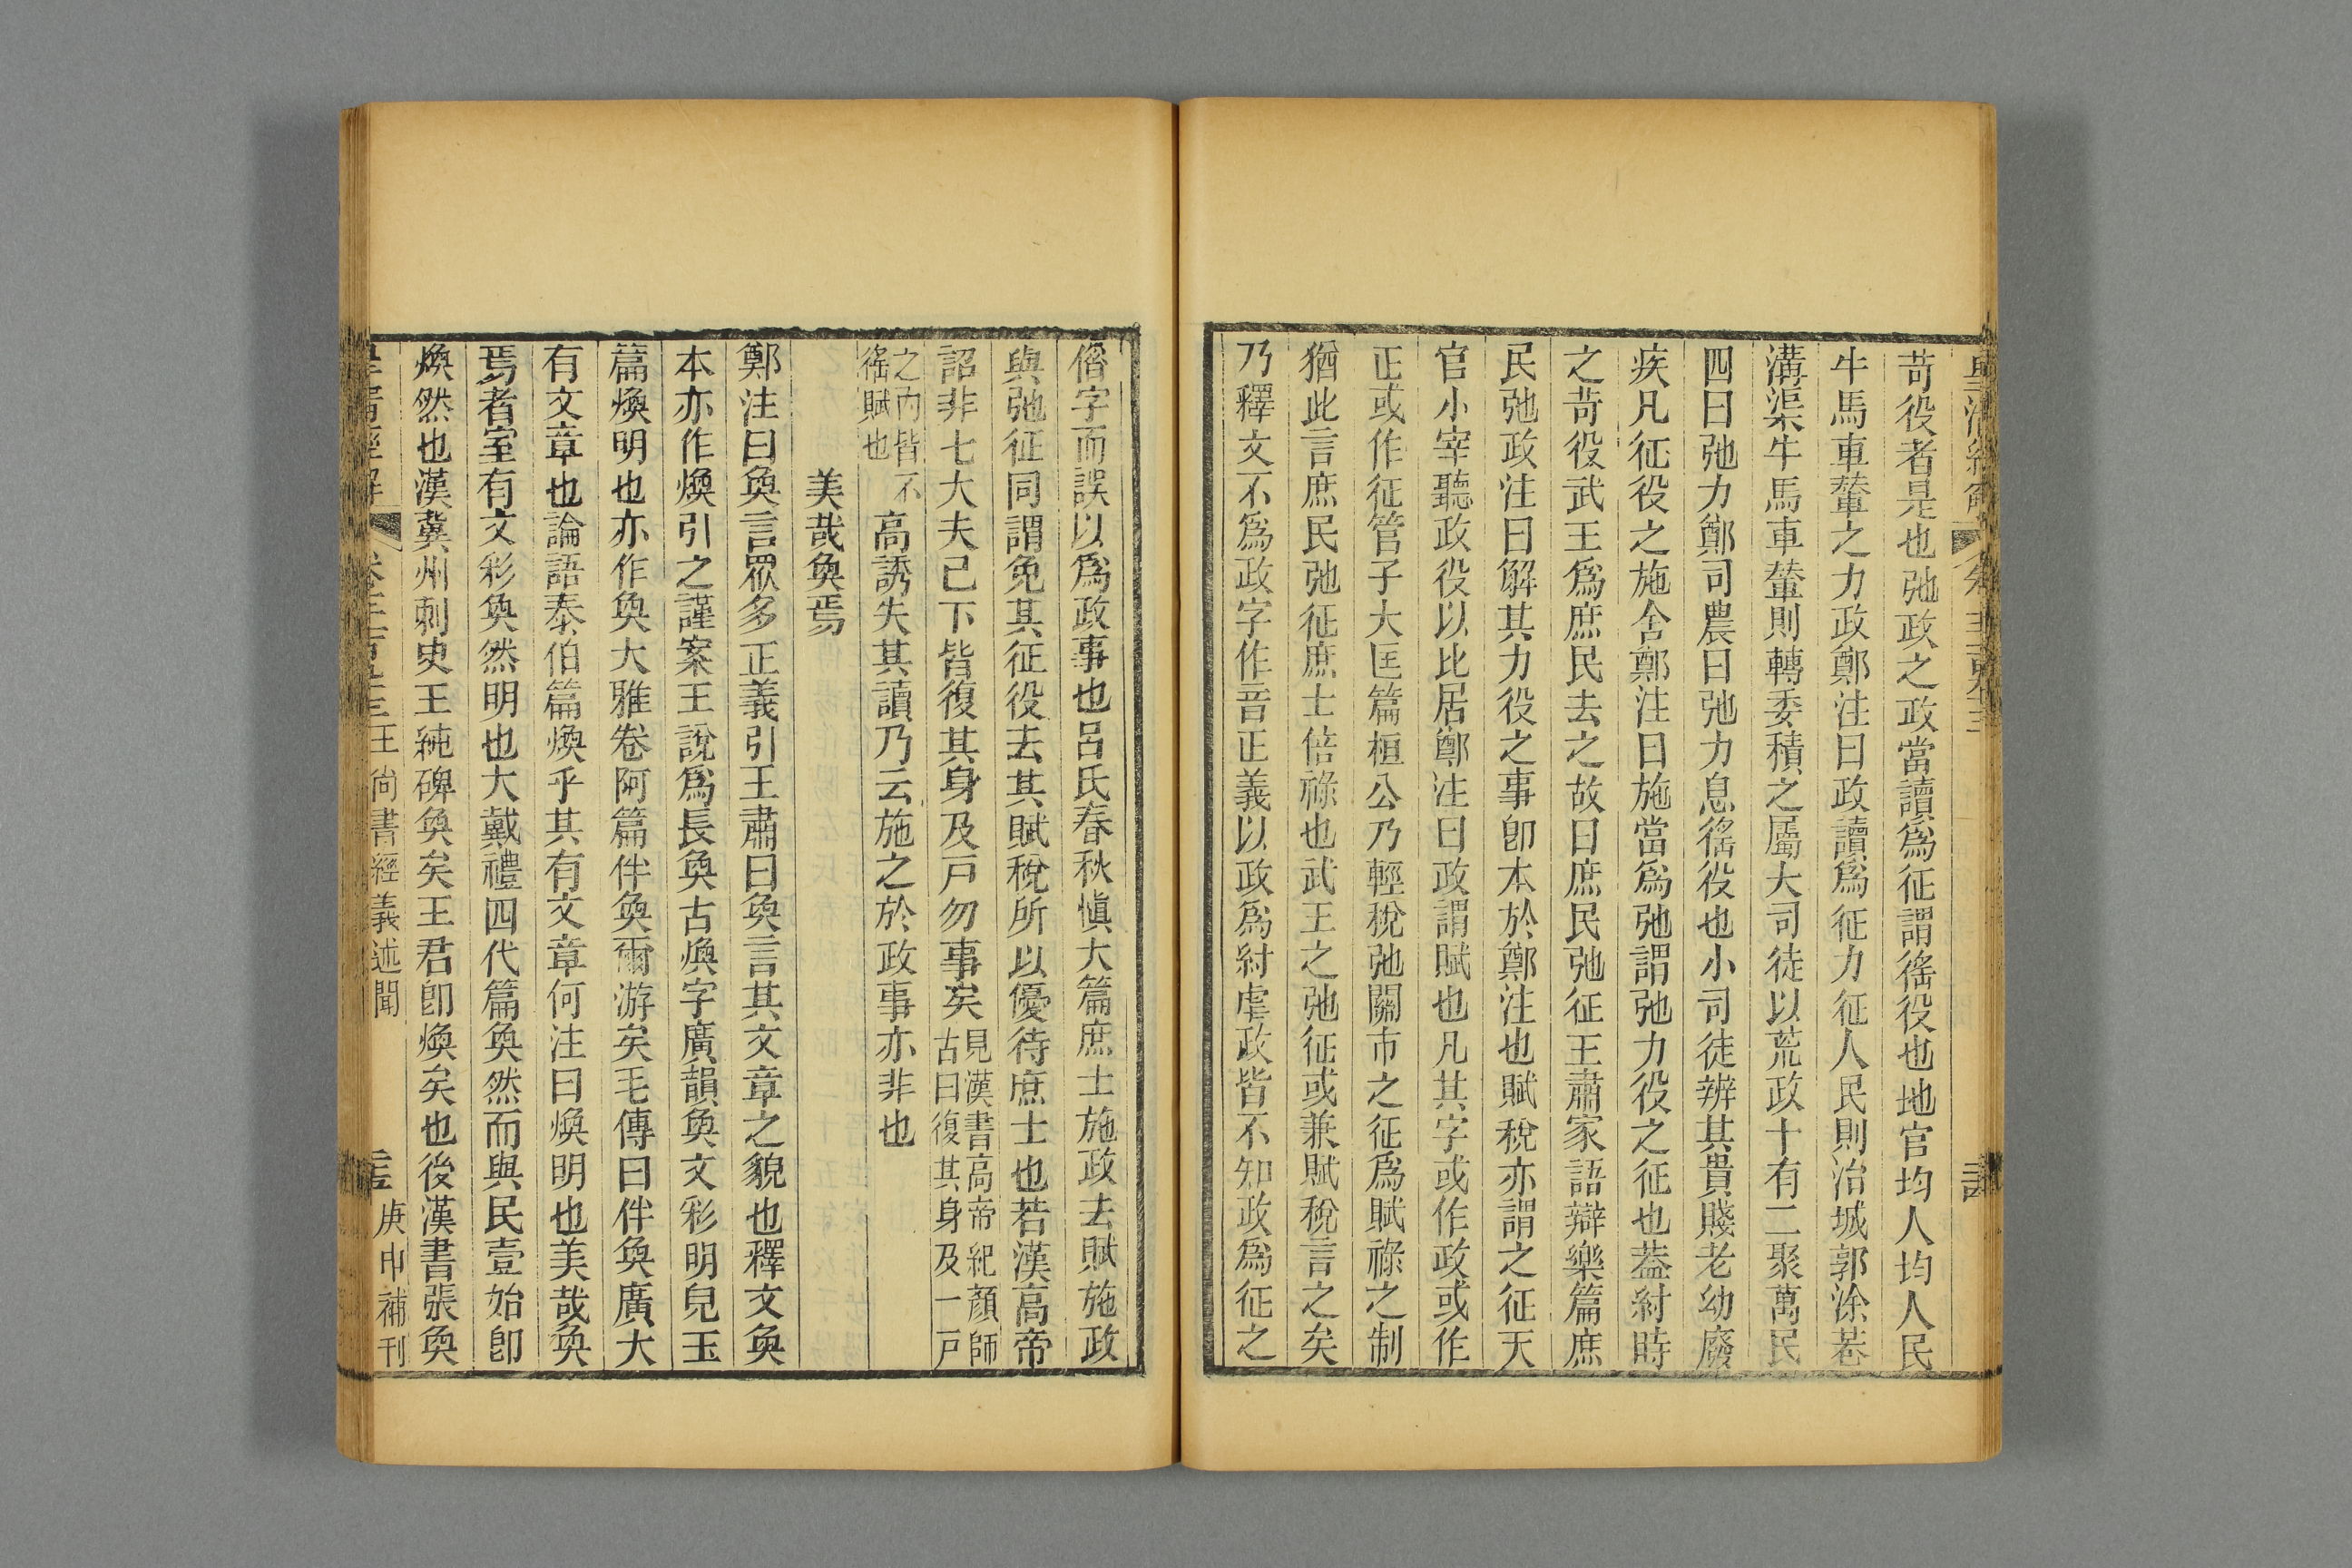 皇清經解 卷
苛役者是也弛政之政當讀爲征謂徭役也地官均人均人民
牛馬車輦之力政鄭注曰政讀爲征力征人民則治城郭涂巷
溝渠牛馬車輦則轉委積之屬大司徒以荒政十有二聚萬民
四曰弛力鄭司農曰弛力息徭役也小司徒辨其貴賤老幼廢
疾凡征役之施舍鄭注曰施當爲弛謂弛力役之征也蓋紂時
之苛役武王爲庶民去之故曰庶民弛征王肅家語辯樂篇庶
民弛政注曰解其力役之事卽本於鄭注也賦稅亦謂之征天
官小宰聽政役以比居鄭注曰政謂賦也凡其字或作政或作
正或作征管子大匡篇桓公乃輕稅弛關市之征爲賦祿之制
猶此言庶民弛征庶士倍祿也武王之弛征或兼賦稅言之矣
乃釋文不爲政字作音正義以政爲紂虐政皆不知政爲征之
偺字而誤以爲政事也呂氏春秋愼大篇庶士施政去賦施政
與弛征同謂免其征役去其賦稅所以優待庶士也若漢高帝
詔非七大夫已下皆復其身及戸勿事矣見漢書高帝紀顔師古曰復其身及一戸
之內皆不徭賦也高誘失其讀乃云施之於政事亦非也
美哉奐焉
鄭注曰奐言眾多正義引王肅曰奐言其文章之貌也釋文奐
本亦作煥引之謹案王說爲長奐古煥字廣韻奐文彩明皃玉
篇煥明也亦作奐大雅卷阿篇伴奐爾游矣毛傳曰伴奐廣大
有文章也論語泰伯篇煥乎其有文章何注曰煥明也美哉奐
焉者室有文彩奐然明也大戴禮四代篇奐然而與民壹始卽
煥然也漢冀州刺史王純碑奐矣王君卽煥矣也後漢書張奐
王尙書經義述聞 庚申補刊